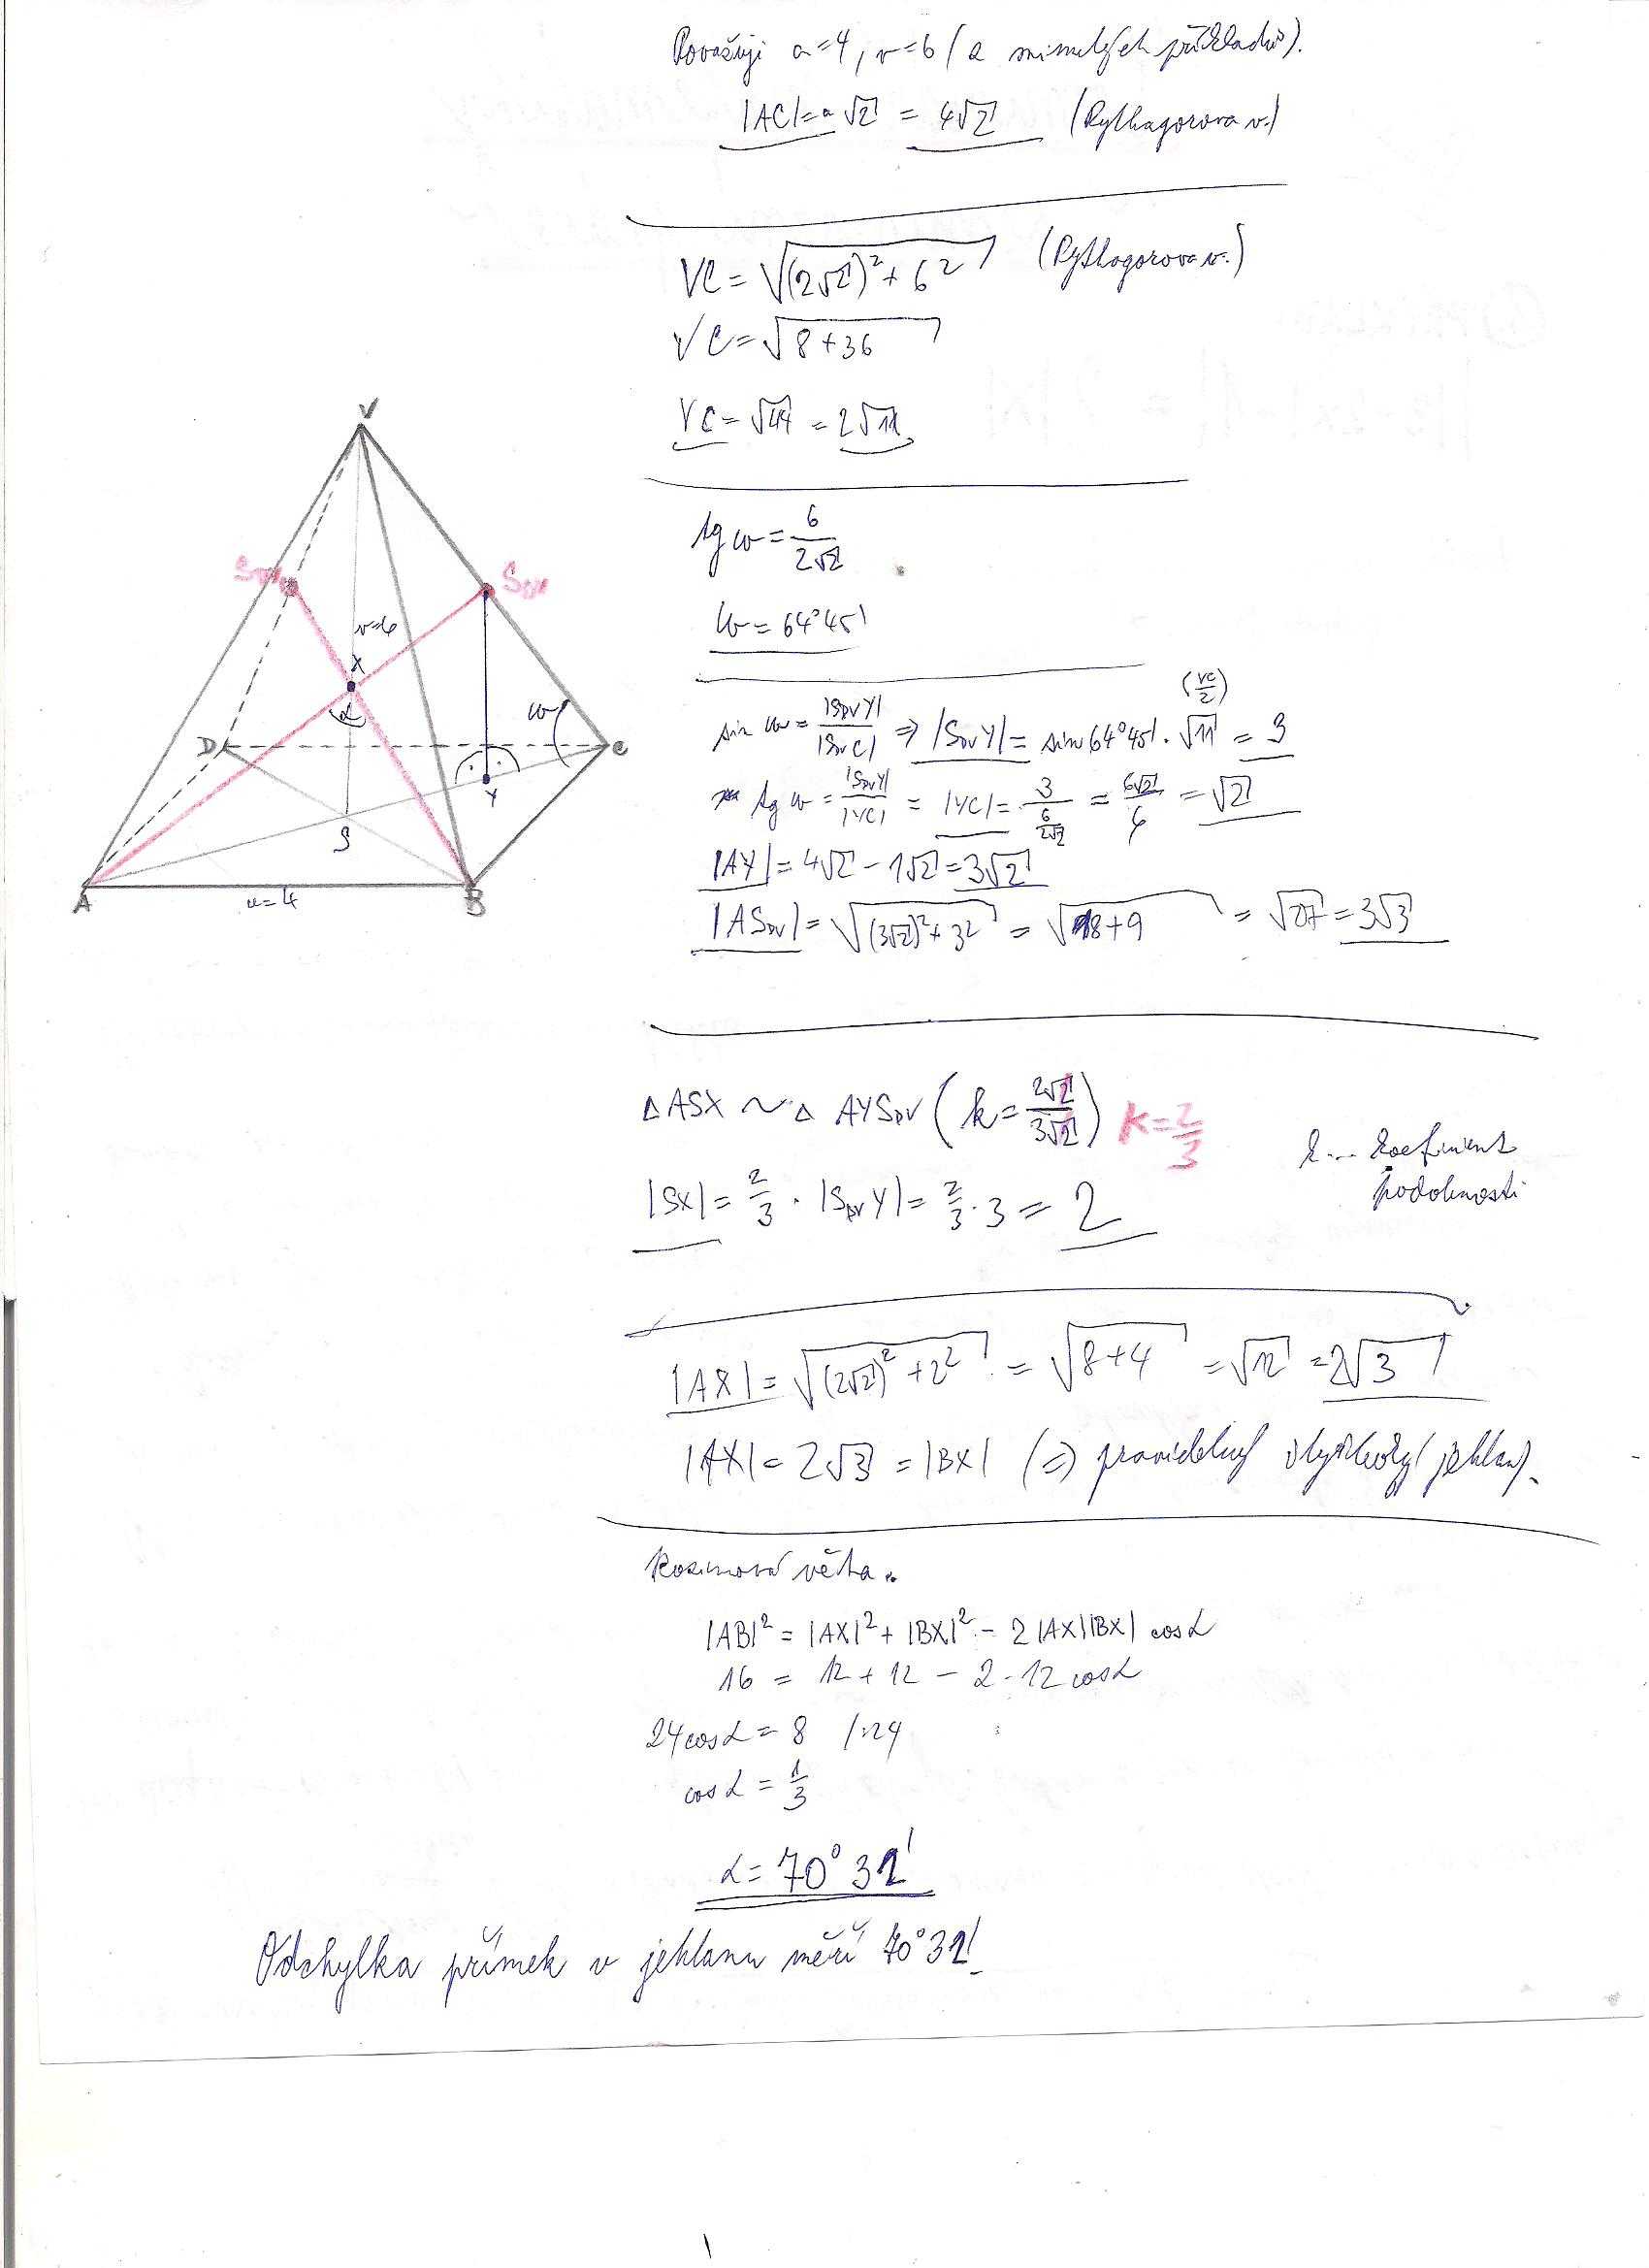 Považuji a=4, v=6 (z minulých příkladů).
|AC|=a√2 = 4√2 (Pythagorova v.)
VC = √((2√2)²+6²) (Pythagorova v.)
VC = √(8+36)
VC = √44 = 2√11
tg ω = 6/(2√2)
ω = 64°45'
sin ω = |S_DV Y|/|S_DV C| ⇒ |S_DV Y| = sin 64°45' · √11 (VC/2) = 3
tg ω = |S_DV Y|/|YC| = |YC| = 3/(6/(2√2)) = 6√2/6 = √2
|AY| = 4√2 - 1√2 = 3√2
|AS_DV| = √((3√2)²+3²) = √(18+9) = √27 = 3√3
△ASX ~ △AYS_DV (k = 2√2/3√2) K=2/3
k... koeficient
podobnosti
|SX| = 2/3 · |S_DV Y| = 2/3 · 3 = 2
|AX| = √((2√2)²+2²) = √(8+4) = √12 = 2√3
|AX| = 2√3 = |BX| (⇒) pravidelný čtyřboký jehlan).
Kosinová věta.
|AB|² = |AX|² + |BX|² - 2|AX||BX| cos α
16 = 12 + 12 - 2·12 cos α
24 cos α = 8 /:24
cos α = 1/3
α = 70°32'
Odchylka přímek v jehlanu měří 70°32'.
V
S_DV
v=6
X
α
ω
D
C
Y
S
A
a=4
B